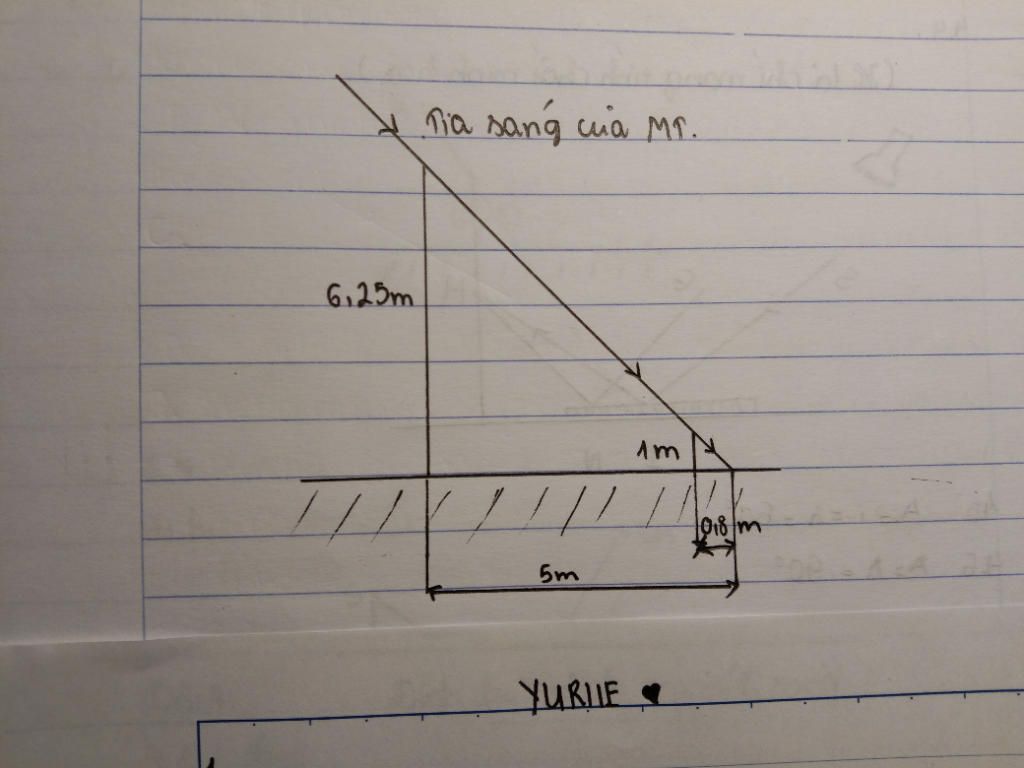 Tia sáng của MT.
6,25m
1m
0,8 m
5m
YURIIE ♥